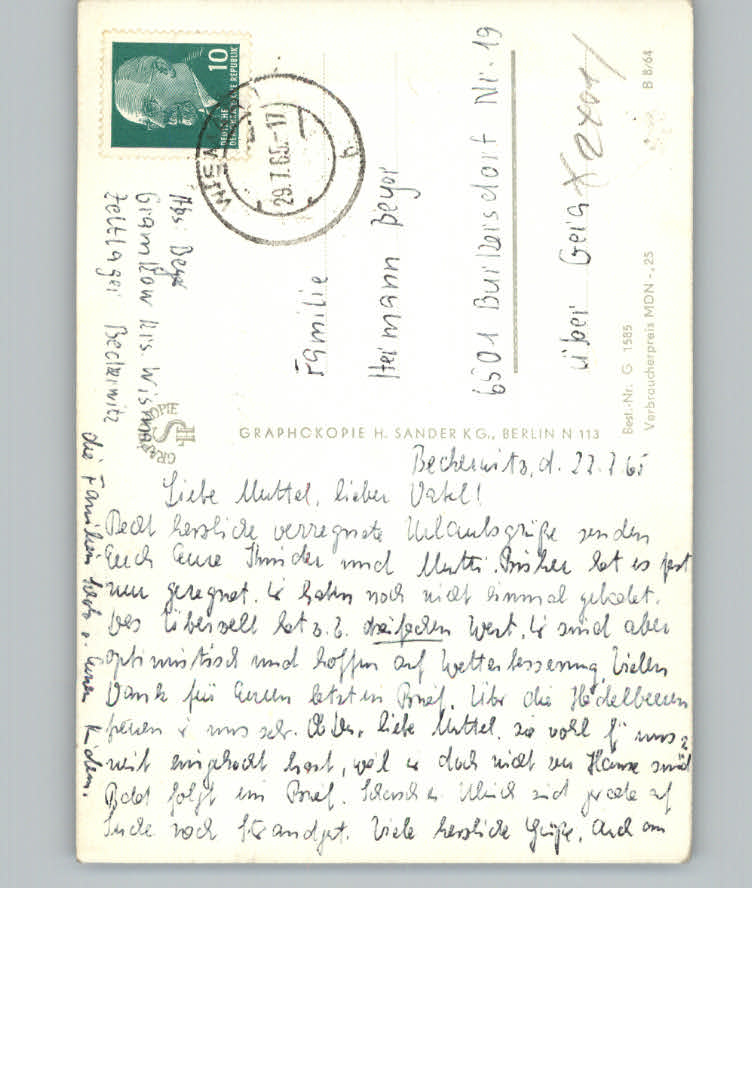 10
DEUTSCHE
DEMOKRATISCHE REPUBLIK
WISMAR
29.7.65.-17
b
Abs: Beyer
Gramkow Krs. Wismar
Zeltlager Beckerwitz
Familie
Hermann Beyer
6501 Burkersdorf Nr. 19
über Gera
B 8/64
Best.-Nr. G 1585
Verbraucherpreis MDN -,25
GRAPHOKOPIE H. SANDER KG., BERLIN N 113
GRAPHOKOPIE
HS
Beckerwitz, d. 27.7.65
Liebe Muttel, lieber Vatel!
Recht herzliche verregnete Urlaubsgrüße senden
Euch Eure Kinder und Mutti. Bisher hat es fast
nur geregnet. Wir haben noch nicht einmal gebadet.
Das Überzelt hat z. Z. dreifachen Wert. Wir sind aber
optimistisch und hoffen auf Wetterbesserung. Vielen
Dank für Euren letzten Brief. Über die Heidelbeeren
freuen wir uns sehr. Ob Du, liebe Muttel, sie wohl für uns
mit eingekocht hast, weil wir doch nicht zu Hause sind?
Bald folgt ein Brief. Ulrich sind gerade auf
Suche nach Strandgut. Viele herzliche Grüße, auch an
die Familien u. Euren Kindern.